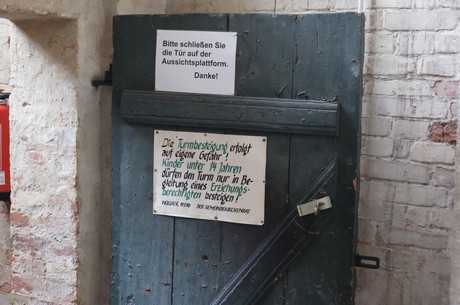 Bitte schließen Sie
die Tür auf der
Aussichtsplattform.
Danke!
Die Turmbesteigung erfolgt
auf eigene Gefahr!
Kinder unter 14 Jahren
dürfen den Turm nur in Be-
gleitung eines Erziehungs-
berechtigten besteigen!
DER GEMEINDEKIRCHENRAT